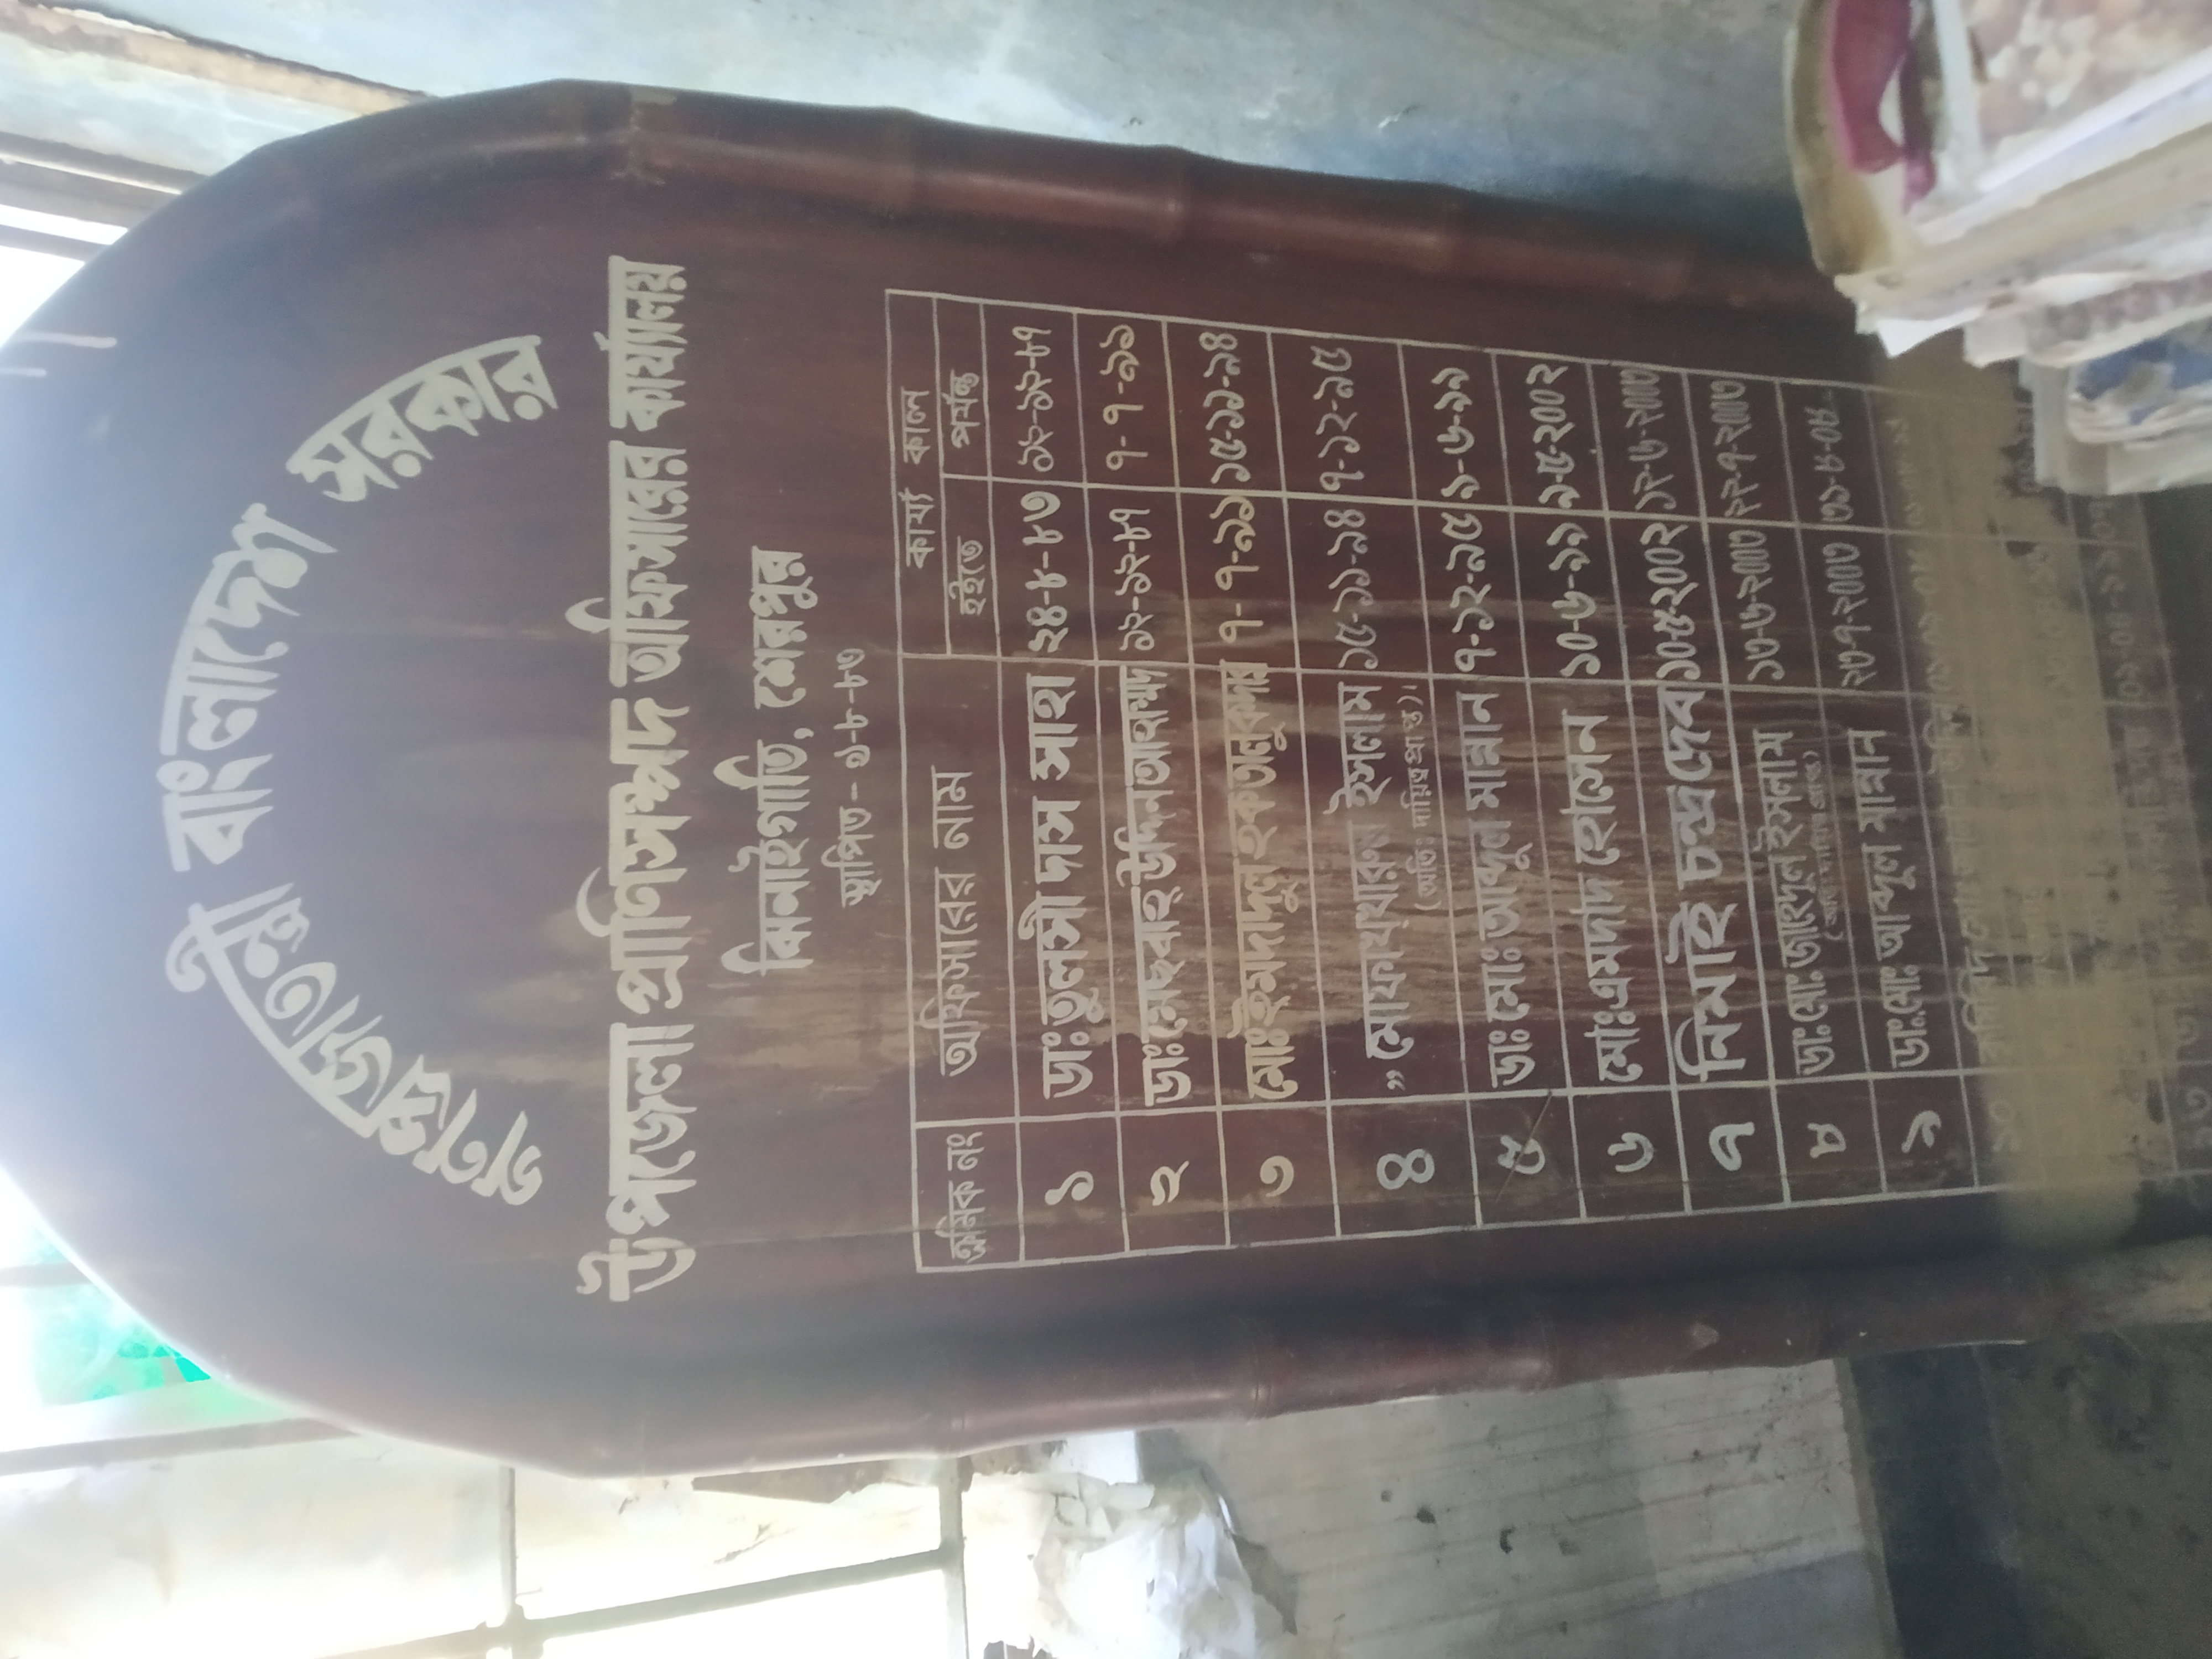 গণপ্রজাতন্ত্রী বাংলাদেশ সরকার
উপজেলা প্রাণিসম্পদ অফিসারের কার্য্যালয়
ঝিনাইগাতি, শেরপুর
স্থাপিত - ১-৮-৮৩
ক্রমিক নং অফিসারের নাম কার্য্য কাল
হইতে পর্যন্ত
১ ডাঃ তুলসী দাস সাহা ২৪-৮-৮৩ ১২-১২-৮৭
২ ডাঃ মেছবাহ্ উদ্দিন আহম্মদ ১২-১২-৮৭ ৭-৭-৯১
৩ মোঃ ইমদাদুল হক তালুকদার ৭-৭-৯১ ১৫-১১-৯৪
৪ " মোফাখ্খারুল ইসলাম ১৫-১১-৯৪ ৭-১২-৯৫
(অতিঃ দায়িত্ব প্রাপ্ত)
৫ ডাঃ মোঃ আব্দুল মান্নান ৭-১২-৯৫ ৯-৬-৯৯
৬ মোঃ এমদাদ হোসেন ১০-৬-৯৯ ৯-৫-২০০২
৭ নিমাই চন্দ্র দেব ১০-৫-২০০২ ১২-৬-২০০৩
৮ ডাঃ মোঃ জাহেদুল ইসলাম ১৩-৬-২০০৩ ২২-৭-২০০৩
৯ ডাঃ মোঃ আব্দুল মান্নান ২৩-৭-২০০৩ ৩১-৮-০৪
১০